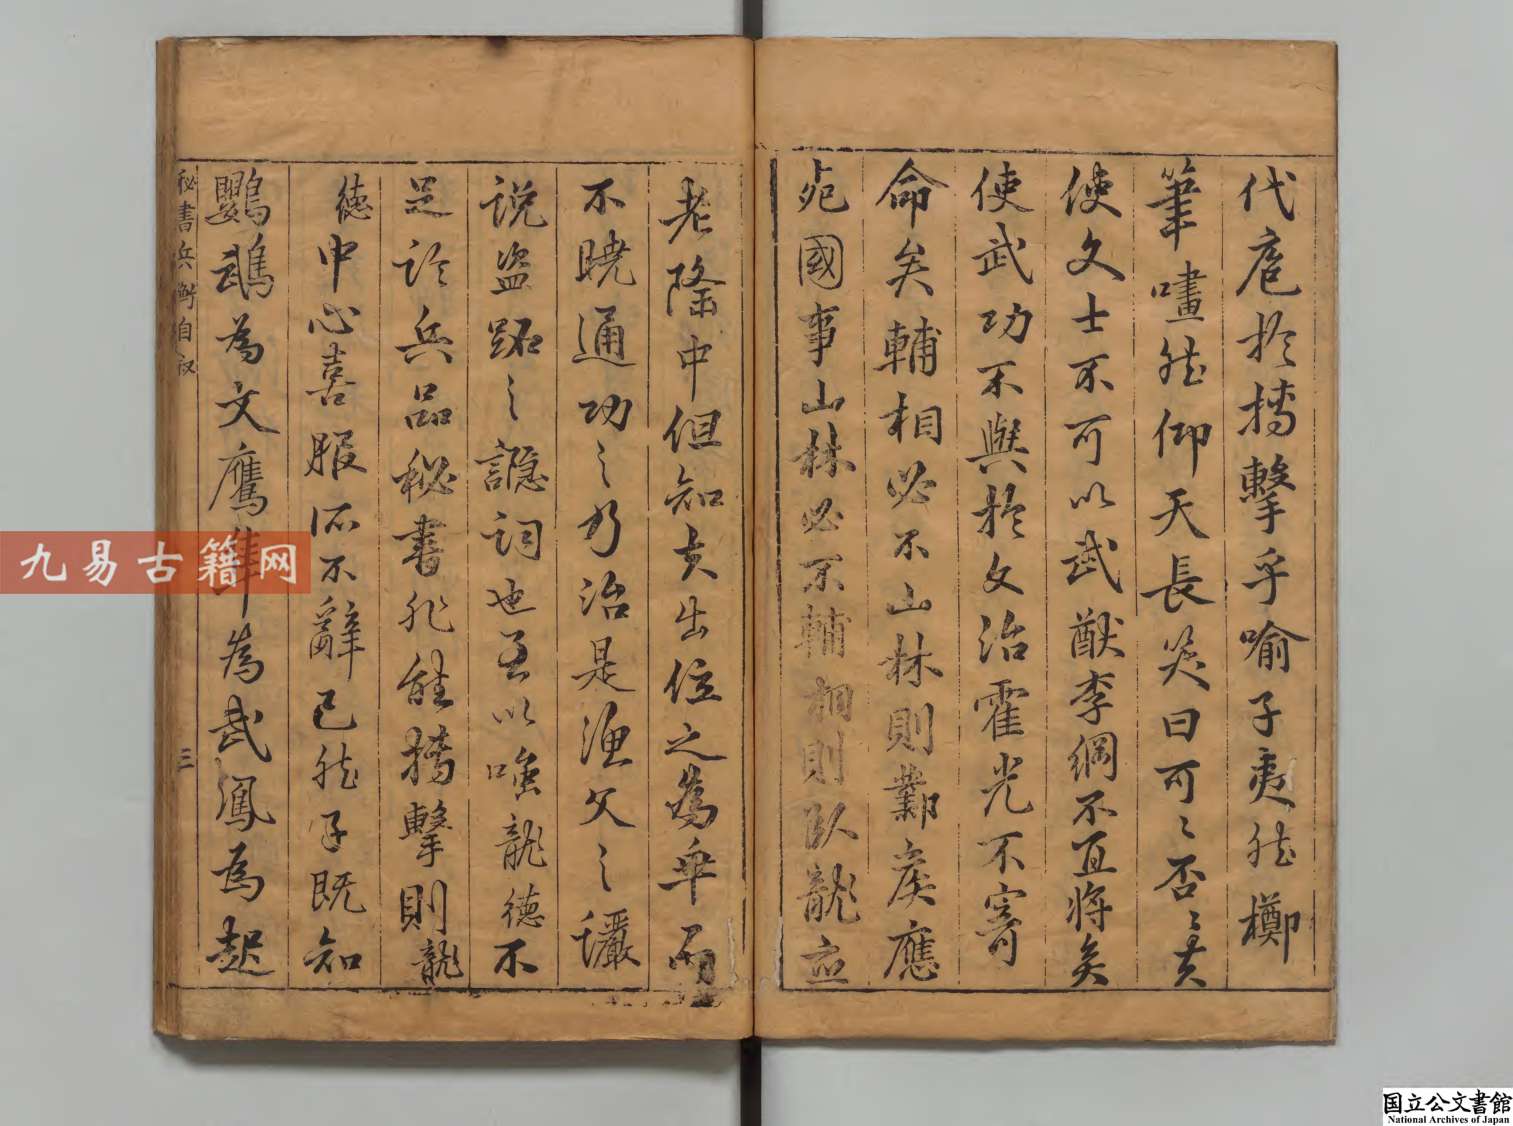 代庖於擣擊乎喻子爽然擲
筆嘩然仰天長笑曰可〻否〻其
使文士不可以武猷李綱不直將矣
使武功不與於文治霍光不寄
命矣輔相必不山林則鄴侯應
國事山林必不輔相則臥龍應
老隆中但知夫出位之為卑而
不曉通功之乃治是漁父之
說盜跖之讔詞也吾以
龍德不
足論兵品秘書非能擣擊則龍
德中心喜服而不辭已然子既知
鸚鵡為文鷹隼為武鳳為起
秘書兵衡自叙
三
九易古籍网
国立公文書館
National Archives of Japan